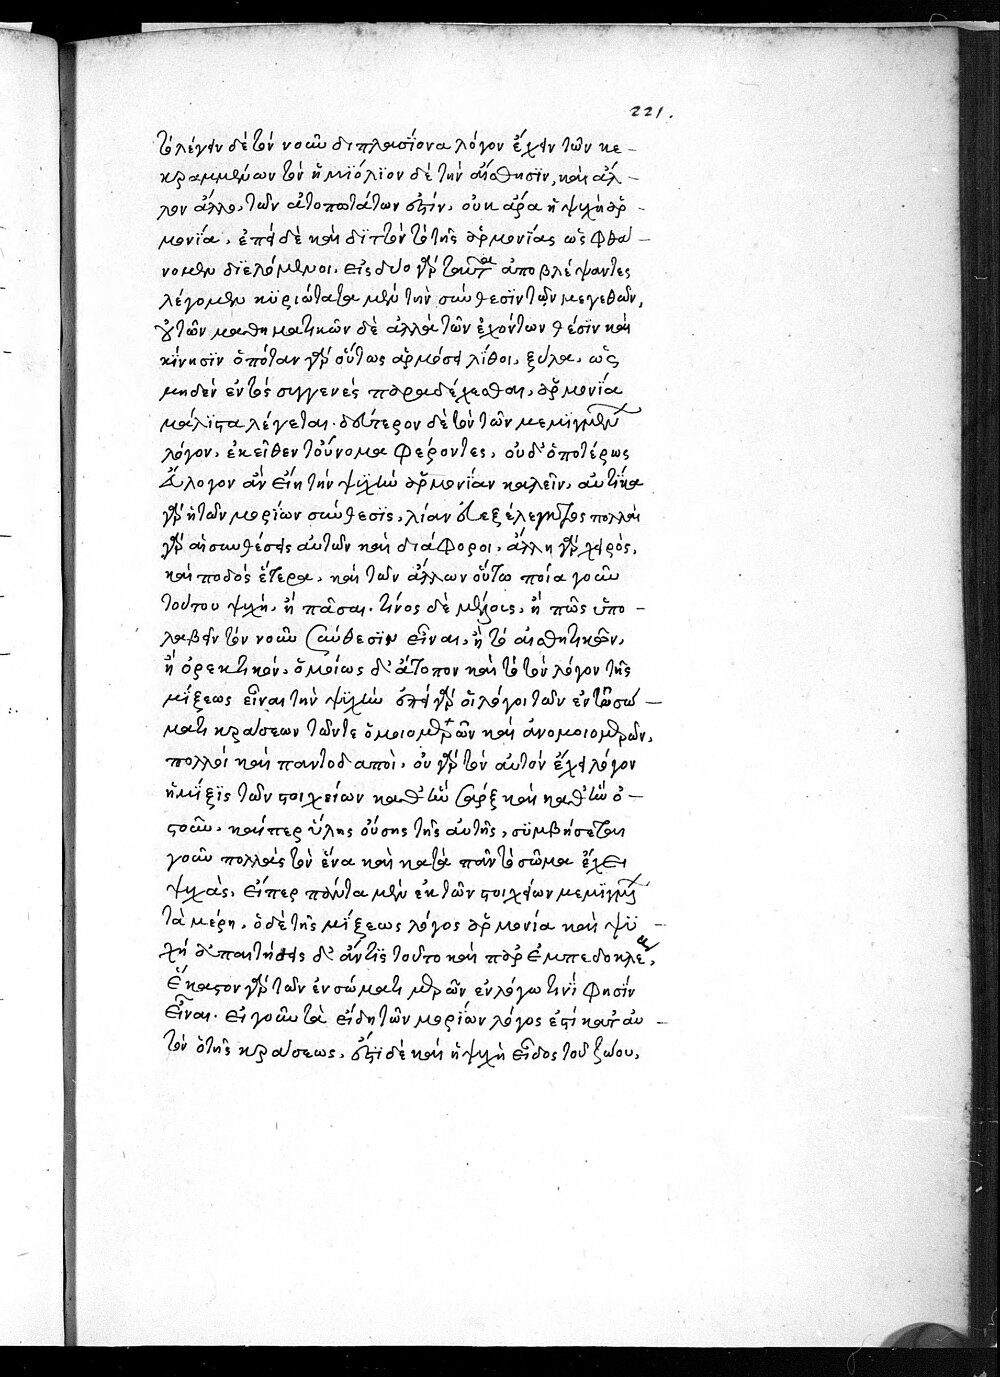 221.
τὸ λέγειν δὲ τὸν νοῦν διπλασίονα λόγον ἔχειν τῶν κε-
κραμμένων τὸν ἡμϊόλϊον δὲ τὴν αἴσθησϊν, καὶ ἄλ-
λον ἄλλο, τῶν ἀτοπωτάτων ἐστίν, οὐκ ἄρα ἡ ψυχὴ ἁρ-
μονία, ἐπεὶ δὲ καὶ διττὸν τὸ τῆς ἁρμονίας ὡς φθά-
νομεν διελόμενοι, εἰς δύο γὰρ ταῦτα ἀποβλέψαντες
λέγομεν κϋριώτατα μὲν τὴν σύνθεσϊν τῶν μεγεθῶν,
οὐ τῶν μαθηματικῶν δὲ ἀλλὰ τῶν ἐχόντων θέσϊν καὶ
κίνησϊν ὁπόταν γὰρ οὕτως ἁρμόσει λίθοι, ξύλα, ὡς
μηδὲν ἐντὸς συγγενὲς παραδέχεσθαι, ἁρμονία
μάλϊστα λέγεται· δεύτερον δὲ τὸν τῶν μεμϊγμένων
λόγον, ἐκεῖθεν τοὔνομα φέροντες, οὐδ' ὁποτέρως
εὔλογον ἂν εἴη τὴν ψϋχὴν ἁρμονίαν καλεῖν, αὐτίκα
γὰρ ἡ τῶν μορίων σύνθεσϊς, λίαν εὐεξέλεγκτος πολλαὶ
γὰρ αἱ συνθέσεις αὐτῶν καὶ διάφοροι, ἄλλη γὰρ χειρὸς,
καὶ ποδὸς ἕτερα, καὶ τῶν ἄλλων οὕτω ποία γοῦν
τούτου ψυχή, ἢ πᾶσαι. τίνος δὲ μέλους, ἢ πῶς ὑπο-
λαβεῖν τὸν νοῦν σύνθεσϊν εἶναι, ἢ τὸ αἰσθητικὸν,
ἢ ὀρεκτικόν, ὁμοίως δ' ἄτοπον καὶ τὸ τὸν λόγον τῆς
μίξεως εἶναι τὴν ψϋχὴν ἐπεὶ γὰρ οἱ λόγοι τῶν ἐν τῷ σώ-
ματι κράσεων τῶν τε ὁμοιομερῶν καὶ ἀνομοιομερῶν,
πολλοί καὶ παντοδαποὶ, οὐ γὰρ τὸν αὐτὸν ἔχει λόγον
ἡ μῖξϊς τῶν στοιχείων καθ' ἣν σάρξ καὶ καθ' ἣν ὀ-
στοῦν, καίπερ ὕλης οὔσης τῆς αὐτῆς, σϋμβήσεται
γοῦν πολλὰς τὸν ἕνα καὶ κατὰ πᾶν τὸ σῶμα ἔχειν
ψυχὰς, εἴπερ πάντα μὲν ἐκ τῶν στοιχείων μεμϊγμένα
τὰ μέρη, ὁ δὲ τῆς μίξεως λόγος ἁρμονία καὶ ψϋ-
χὴ ἀπαιτήσεις δ' ἄν τϊς τοῦτο καὶ παρ' Ἐμπεδοκλέους,
ἕκαστον γὰρ τῶν ἐν σώματι μερῶν ἐν λόγω τινΐ φησϊν
εἶναι. εἰ γοῦν τὰ εἴδη τῶν μορίων λόγος ἐστὶ κατ' αὐ-
τὸν ὁ τῆς κράσεως, ἔστϊ δὲ καὶ ἡ ψυχὴ εἶδος τοῦ ζώου,